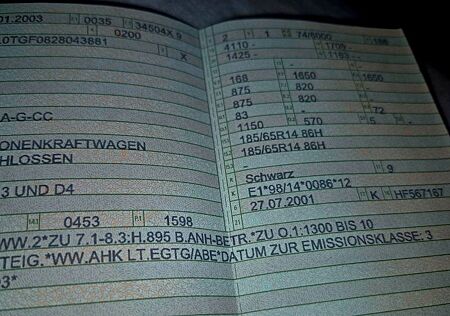 01.2003
0035
34504X 9
0200
0TGF0828043881
X
A-G-CC
ONENKRAFTWAGEN
HLOSSEN
3 UND D4
0453
1598
2 1 74/6000
4110 - 1709 - 188
1425 - 1163 -
168 1650 1650
875 820
875 820
83 - 72
1150 570 5 -
185/65R14 86H
185/65R14 86H
-
Schwarz 9
E1*98/14*0086*12
27.07.2001 K HF567167
WW.2*ZU 7.1-8.3:H.895 B.ANH-BETR.*ZU O.1:1300 BIS 10
TEIG.*WW.AHK LT.EGTG/ABE*DATUM ZUR EMISSIONSKLASSE: 3
03*